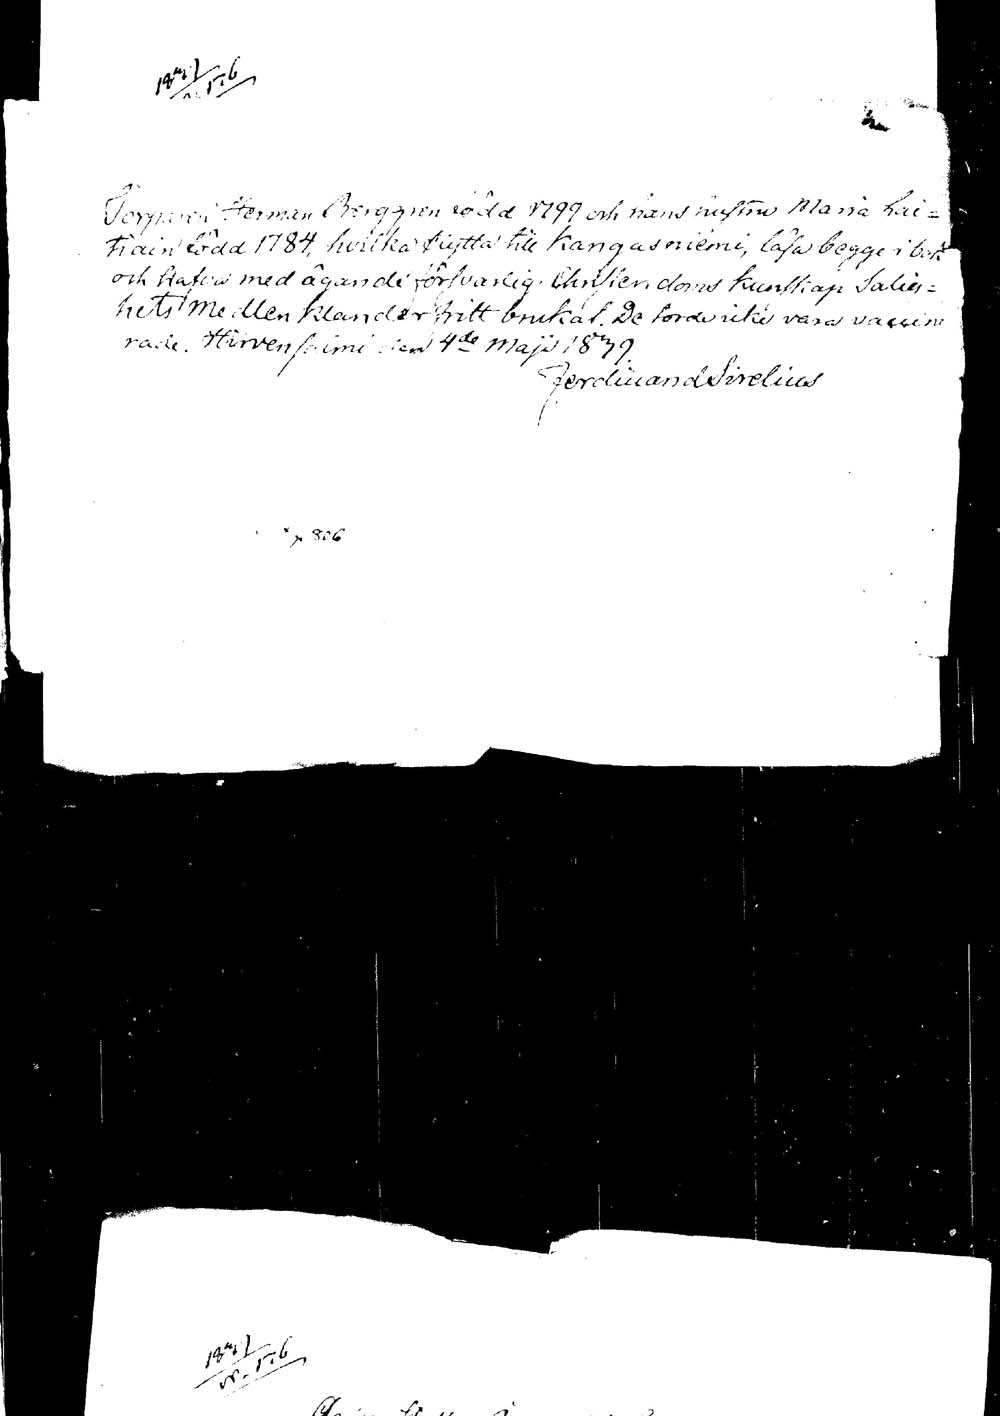 Torparen Herman Berggren född 1799 och hans hustru Maria Lai=
tiain född 1784, hvilka flytta till Kangasniemi, läsa begge i bok
och stafva med ägande försvarlig Christendoms kunskap Salig=
hets Medlen klanderfritt brukat. De torde icke vara vaccine
rade. Hirvensalmi den 4de Maji 1839.
Ferdinand Sirelius
p 806